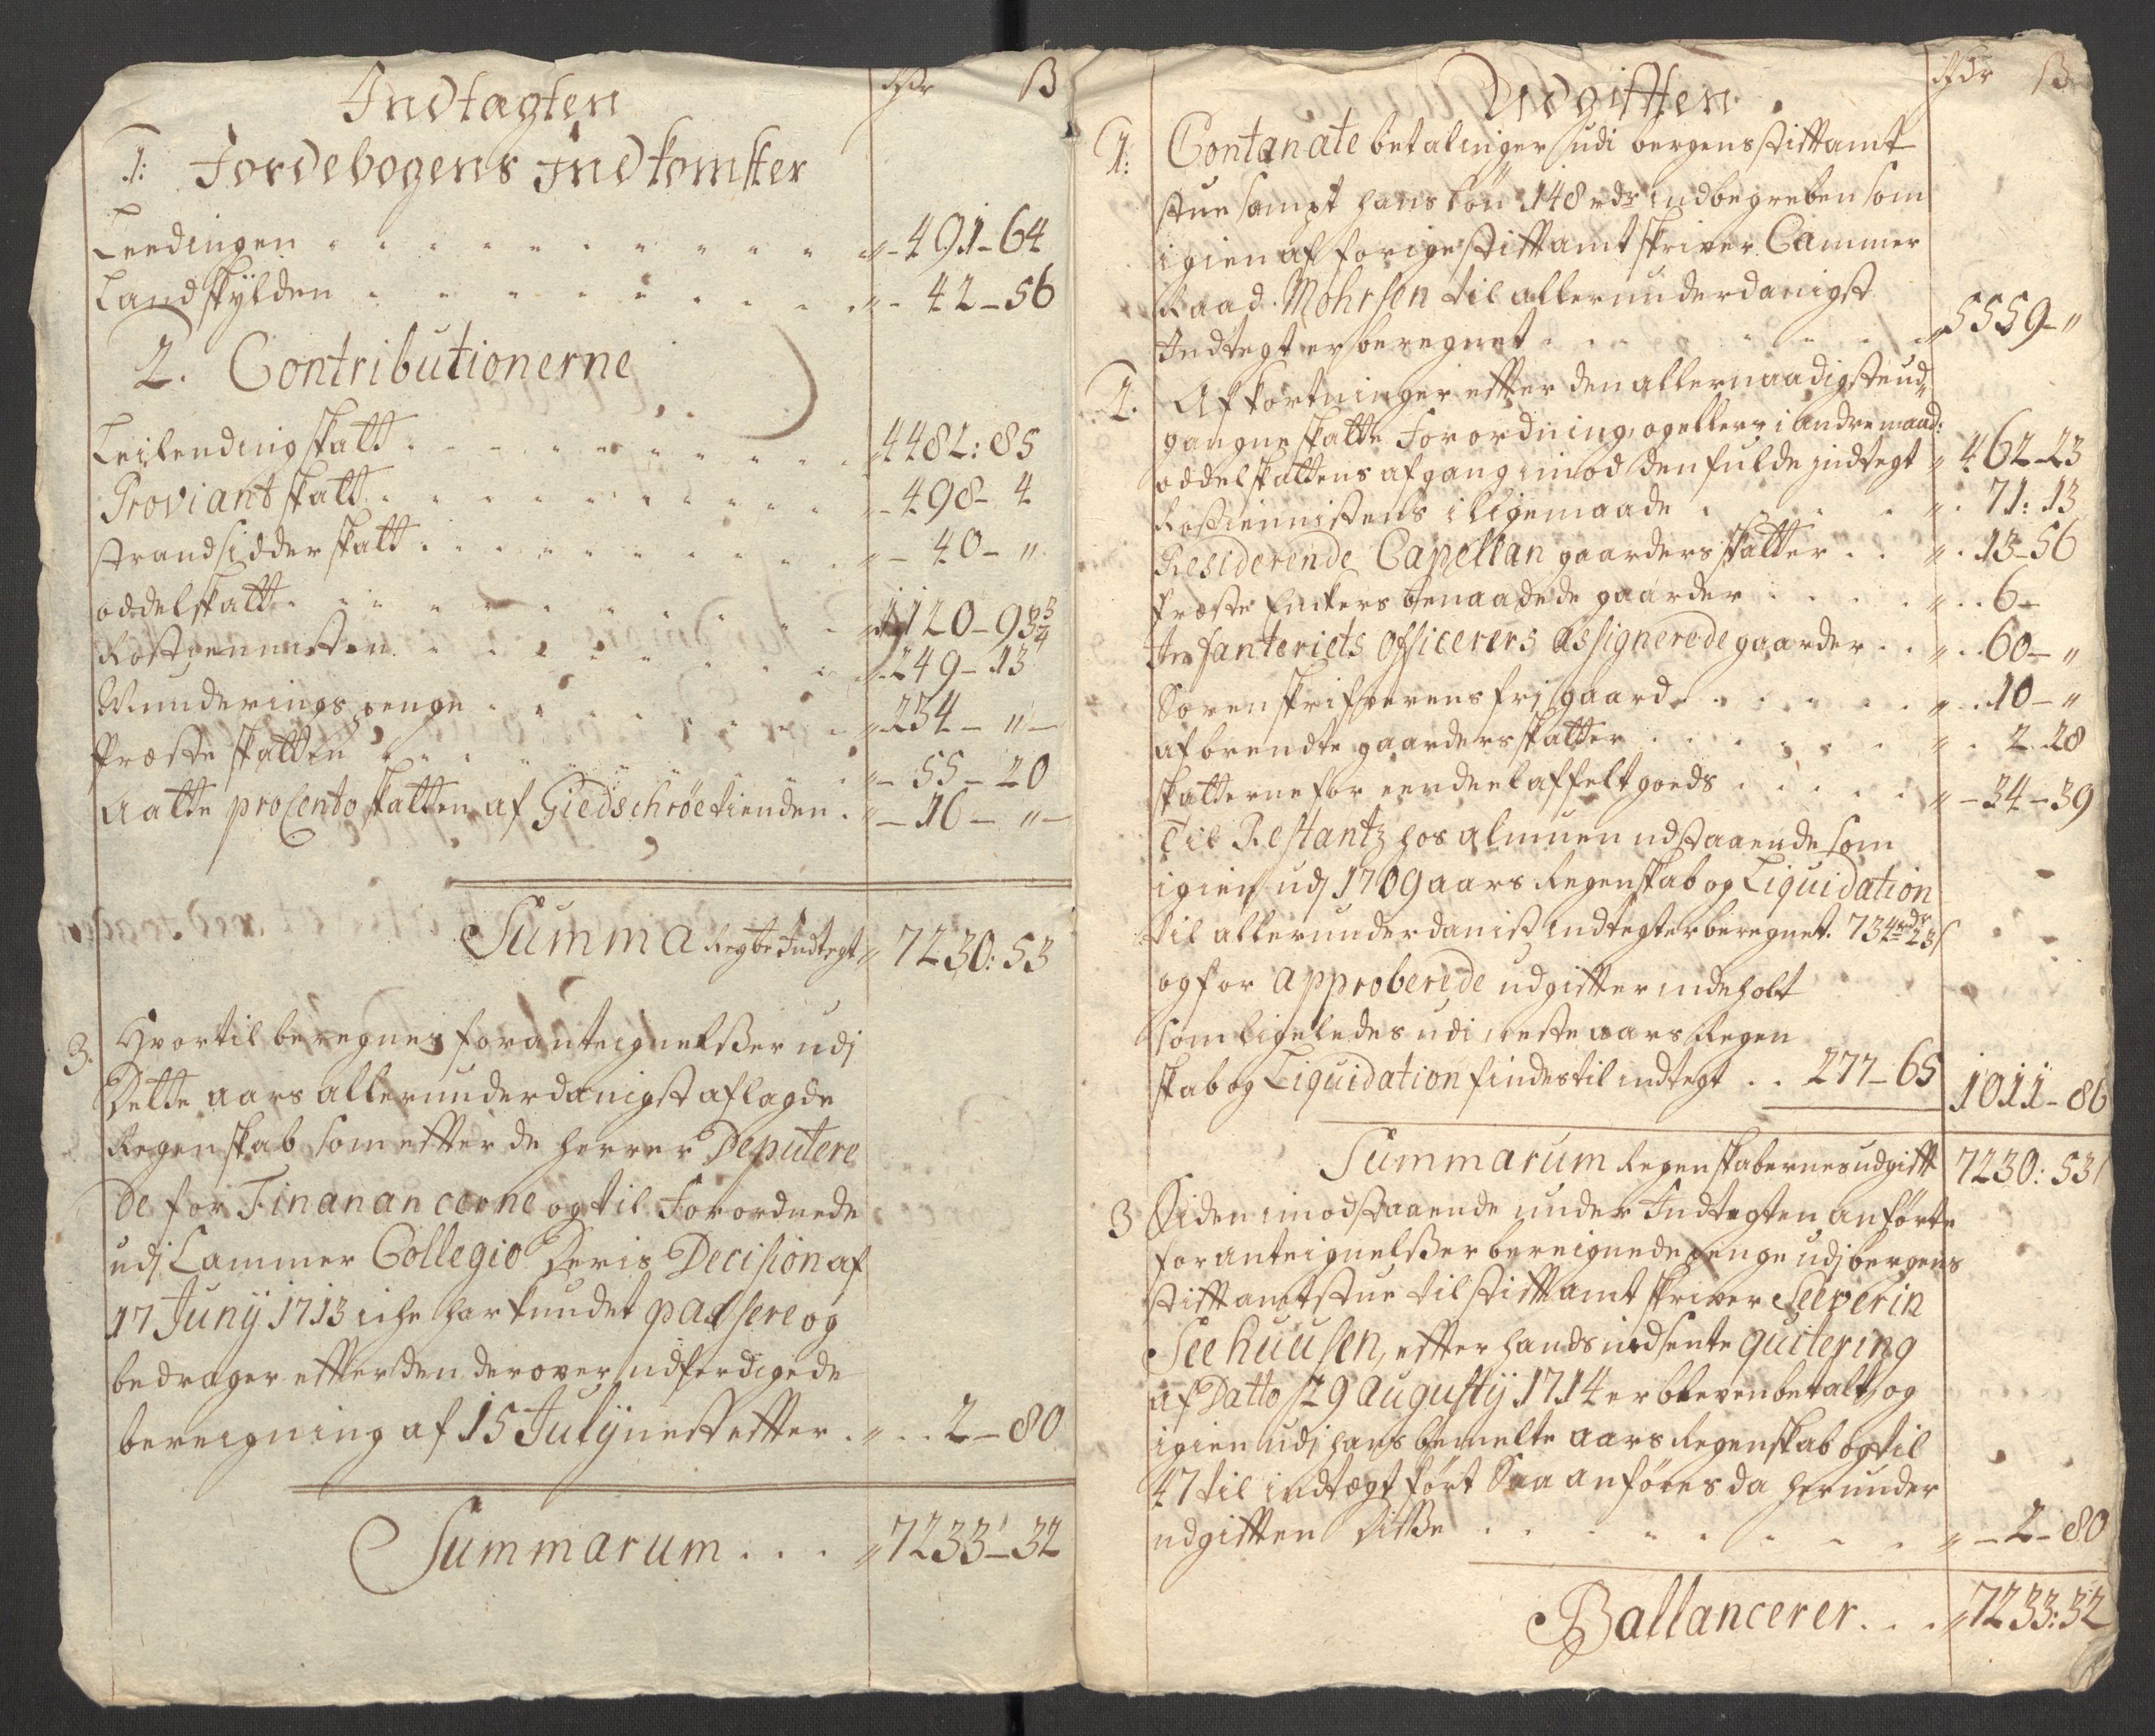 Indtagten
Rdr ß
1: Jordebogens Indkomster
Leedingen . . . . . . . . . . . „-491-64
Landskÿlden . . . . . . . . . . „- 42-56
2. Contributionerne
Leilendingskatt . . . . . . . . . „4482:85
Proviantskatt . . . . . . . . . „-498- 4
strandsidderskatt . . . . . . . . . „- 40- „
oddelskatt . . . . . . . . . „1120-93¾
Rostiennisten . . . . . . . . . „-249-13
Munderings penge . . . . . . . . „-234- „-
Præste skatten . . . . . . . . . „- 55-20
Aatte procento skatten af Giedschröe tienden . „- 16- „-
Summa Regbr Indtegt „ 7230:53
3. Hvortil beregnes for anteignelßer udj
Dette aars allerunderdanigst aflagde
Regenskab som efter de herrer Deputere
De for Finanancerne og til Forordnede
udj Cammer Collegio Deris Decision af
17 Junij 1713 iche har kundet passere og
bedrager efter den derover udferdigede
bereigning af 15 Julij nest efter . „ . . 2-80
Summarum . . . „7233-32
Udgiften
Rdr ß
1: Contanate betalinger udi bergens stiftamt
stue sampt hans lön 148 rdr indbegreben som
igien af forige stiftamtskriver Cammer
Raad Mohrsen til allerunderdanigst
Indtegt er beregnet . . . . . . . . . „5559-„
2. Afkortninger efter den allernaadigste ud-
gangne skatte Forordning, og ellers i andre maad:
oddelskattens afgang imod den fulde indtegt „ 462-23
Rostiennistens i ligemaade . . . . „. 71:13
Residerende Capellan gaarders skatter . . „. 13-56
Præste Enckers benaadede gaarder . . . . „. . 6-
Infanteriets Officerers assignerede gaarder . . „. . 60-„
Sorenskrifverens frj gaard . . . . . . „. . 10-„
afbrendte gaarders skatter . . . . . . „. . 2.28
skatterne for eendeel affelt goeds . . . . . „- 34-39
Til Restantz hos almuen udstaaende som
igien udj 1709 aars Regenskab og Liquidation
til allerunderdanist Indtegt er beregnet. 734rdr 23ß
og for approberede udgifter indeholt
som ligeledes udi neste aars Regen
skab og Liquidation findes til indtegt . . 277-65 1011-86
Summarum Regenskabernes udgift 7230:53
3 Siden imodstaaende under Indtegten anförte
for anteignelßer bereignede penge udj bergens
stiftamtstue til stiftamtskriver Seeverin
Seehuusen, efter hands indsente quitering
af Datto 29 Augustij 1714 er bleven betalt, og
igien udj hans bemelte aars Regenskab og til
47 til indtægt fört Saa anföres da herunder
udgiften disße . . . . . . . . . „-2-80
Ballancerer . . . „7233:32